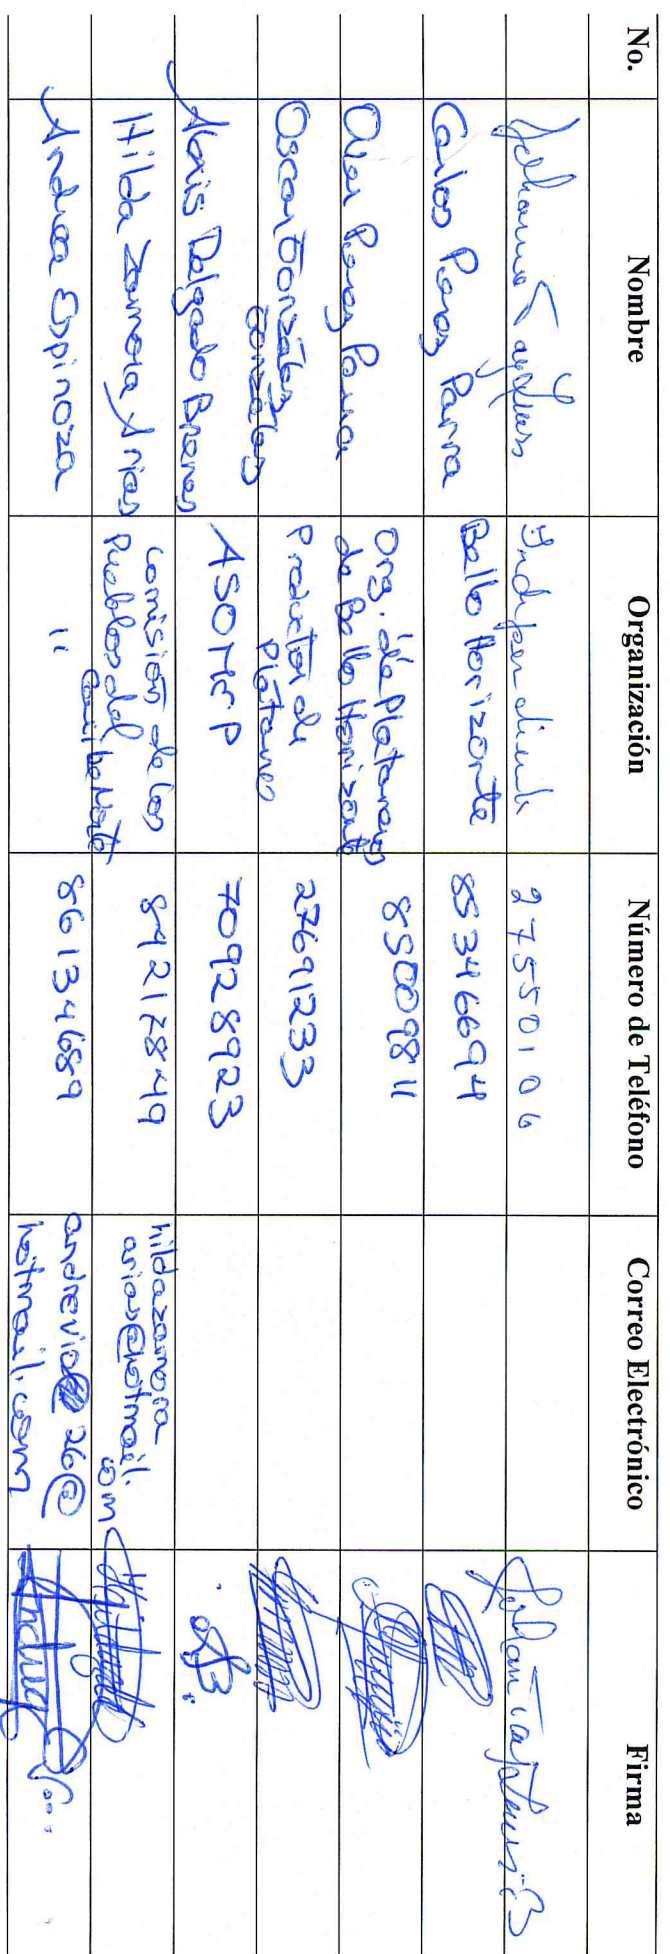 No. Nombre Organización Número de Teléfono Correo Electrónico Firma
Independiente 27550106
Carlos Perez Parra Bello Horizonte 85346694
Perez Parra Org. de Plataneros de Bello Horizonte 85009811
Oscar González González Productor de Plátanos 27691233
Alexis Delgado Brenes ASOMEP 70928923
Hilda Zamora Arias Comisión de los Pueblos del Caribe Norte 84217849 hildazamora arias@hotmail. com
Andrea Espinoza " 86134689 26@ hotmail.com